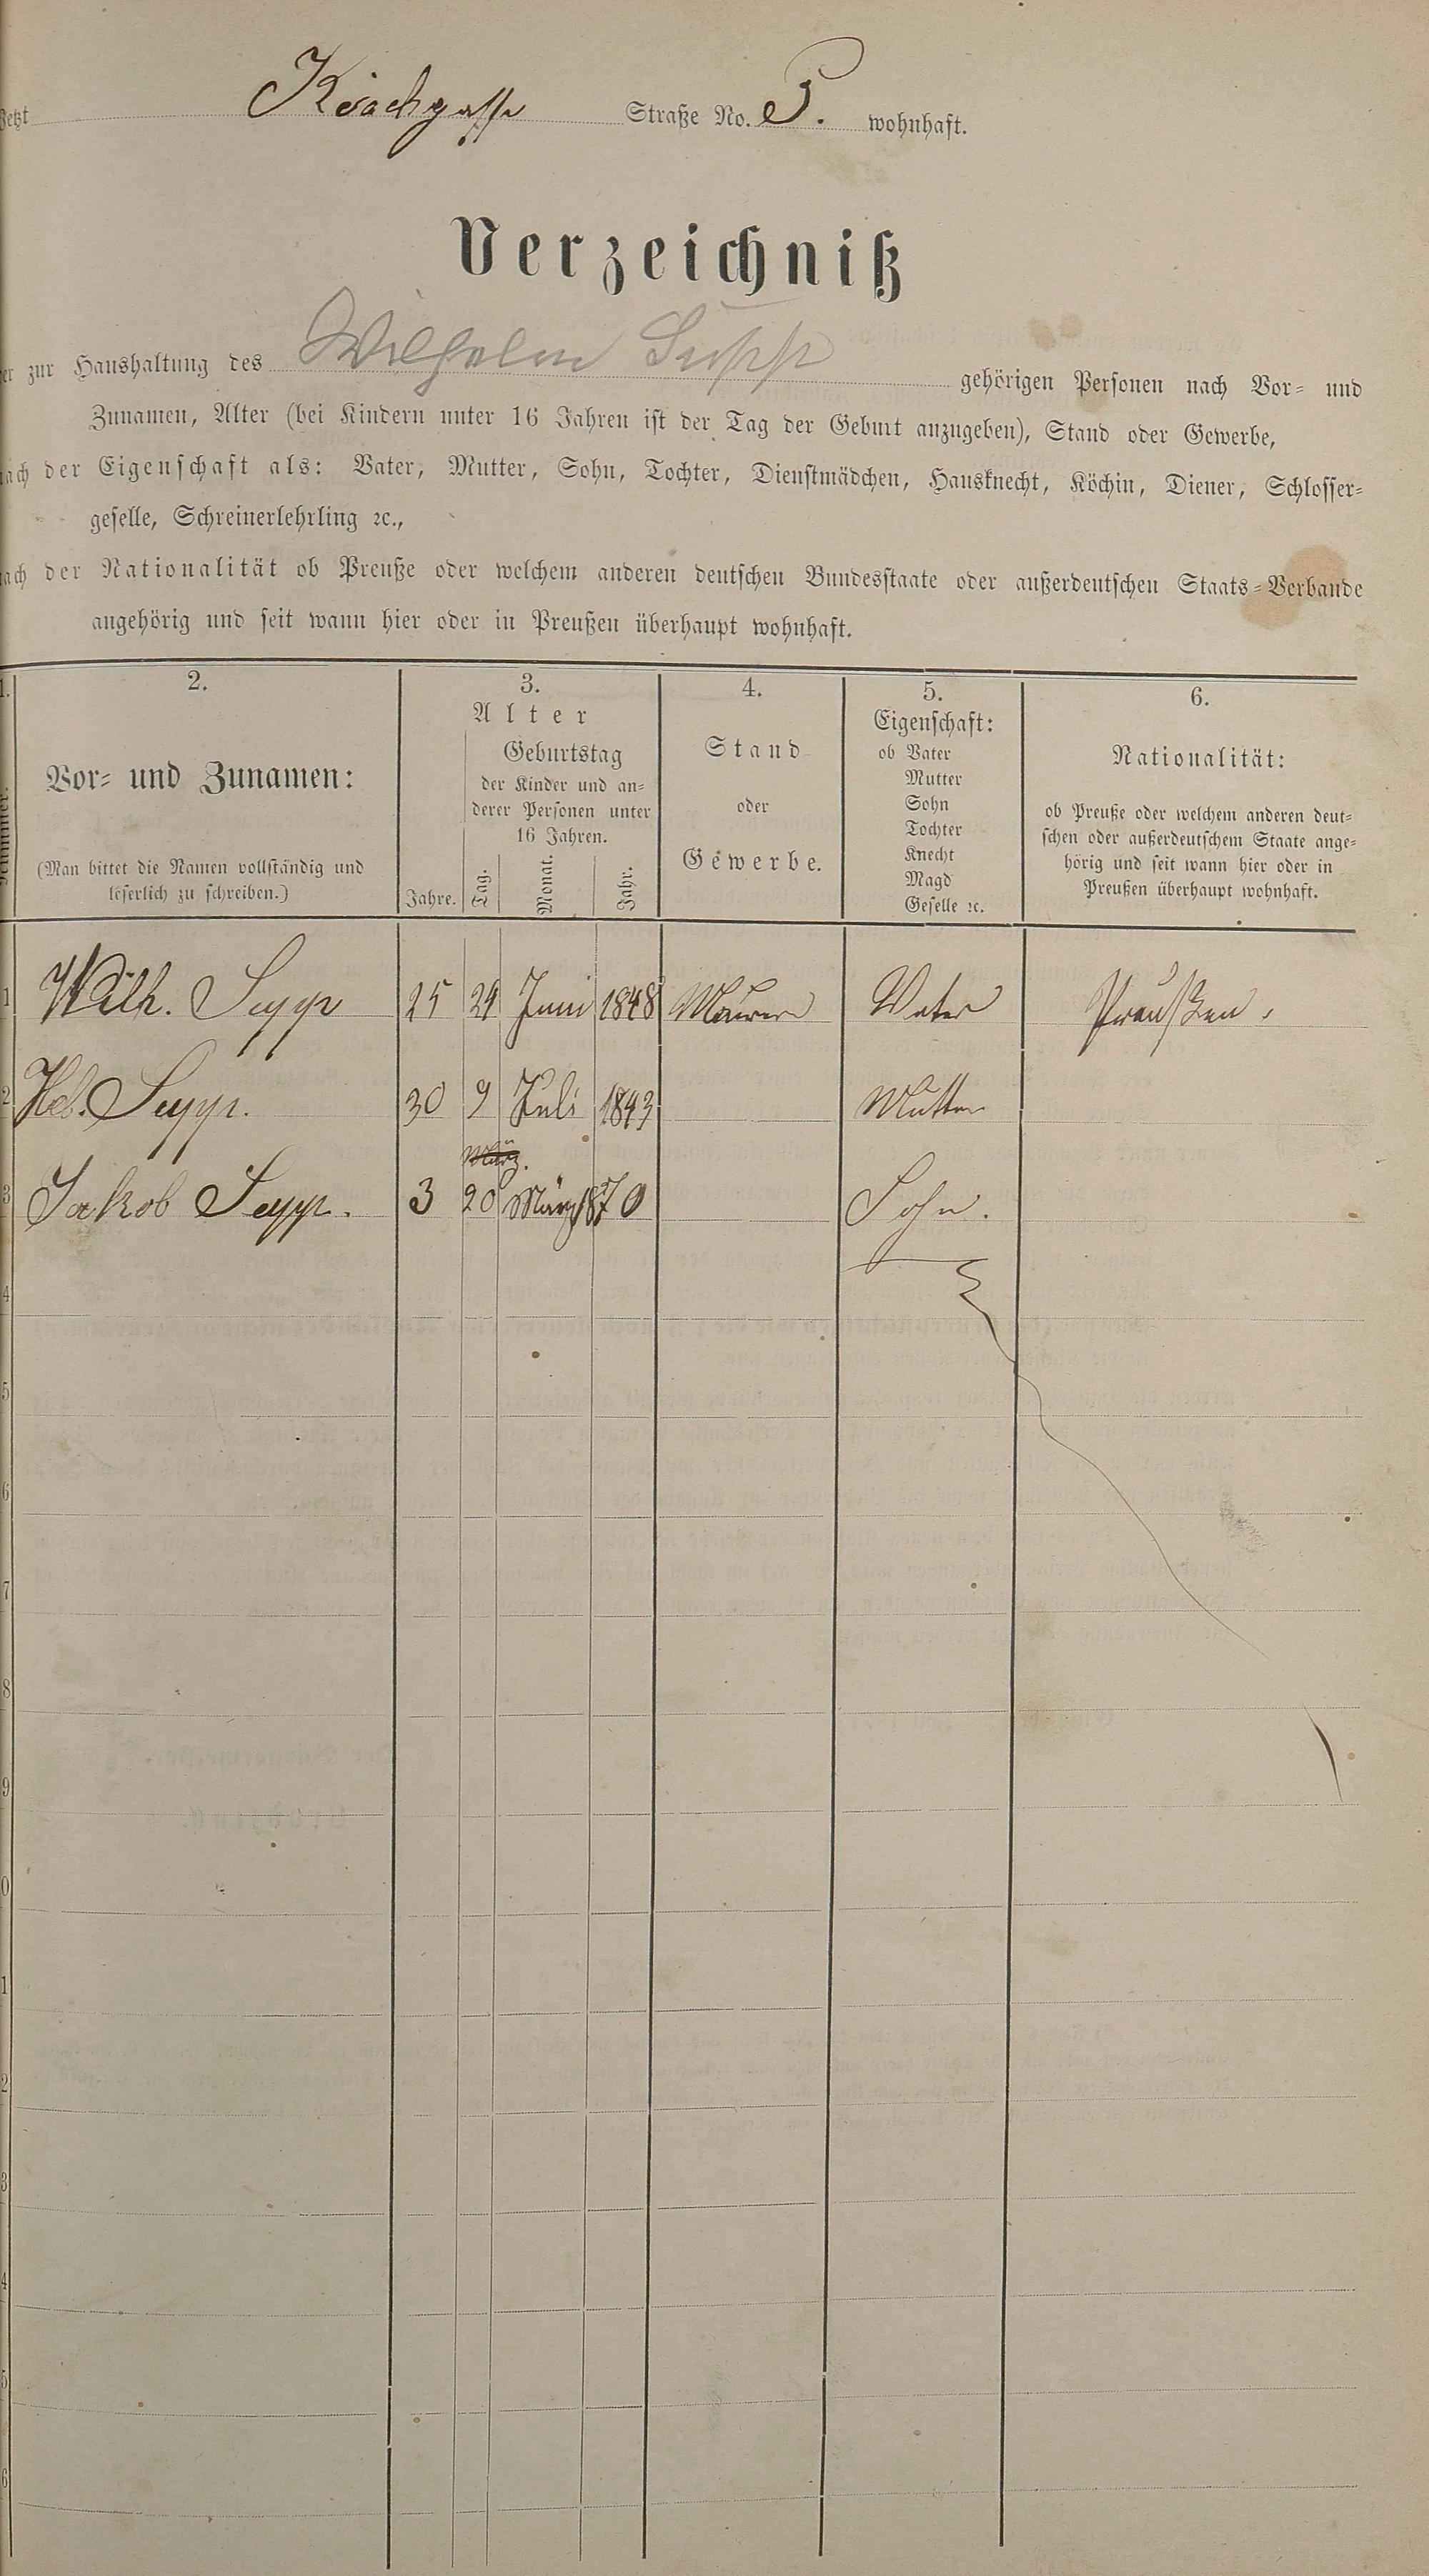 Jetzt Kirchgasse Straße No. 5. wohnhaft.
Verzeichniß
der zur Haushaltung des Wilhelm Supp gehörigen Personen nach Vor- und
Zunamen, Alter (bei Kindern unter 16 Jahren ist der Tag der Geburt anzugeben), Stand oder Gewerbe,
nach der Eigenschaft als: Vater, Mutter, Sohn, Tochter, Dienstmädchen, Hausknecht, Köchin, Diener, Schlosser-
geselle, Schreinerlehrling ꝛc.,
nach der Nationalität ob Preuße oder welchem anderen deutschen Bundesstaate oder außerdeutschen Staats-Verbande
angehörig und seit wann hier oder in Preußen überhaupt wohnhaft.
1.
Nummer.
2.
Vor- und Zunamen:
(Man bittet die Namen vollständig und
leserlich zu schreiben.)
3.
Alter
Jahre.
Geburtstag
der Kinder und an-
derer Personen unter
16 Jahren.
Tag. Monat. Jahr.
4.
Stand
oder
Gewerbe.
5.
Eigenschaft:
ob Vater
Mutter
Sohn
Tochter
Knecht
Magd
Geselle ꝛc.
6.
Nationalität:
ob Preuße oder welchem anderen deut-
schen oder außerdeutschem Staate ange-
hörig und seit wann hier oder in
Preußen überhaupt wohnhaft.
1 Wilh. Supp 25 24 Juni 1848 Maurer Vater Preußen.
2 Supp. 30 9 Juli 1843 Mutter
März.
3 Jakob Supp. 3 20 März 1870 Sohn.
4
5
6
7
8
9
0
1
2
3
4
5
6